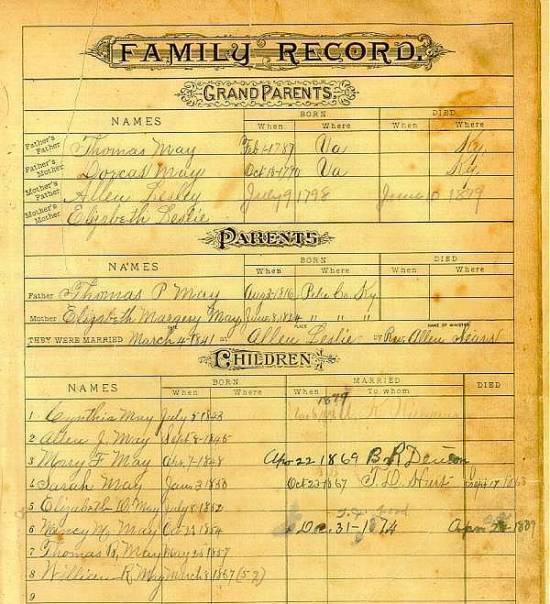 FAMILY RECORD.
GRAND PARENTS.
NAMES BORN DIED
When Where When Where
Father's Father Thomas May Feb 1-1787 Va Ky,
Father's Mother Dorcas May Oct 18-1790 Va Ky,
Mother's Father Allen Lesley July 9 1798 June 1879
Mother's Mother Elizbeth Leslie
PARENTS
NAMES BORN DIED
When Where When Where
Father Thomas P May Aug 1816 Pike Co Ky
Mother Elizabeth Margery May June 8 1824 " " "
THEY WERE MARRIED DATE March 4-1841 at PLACE Allen Leslie BY NAME OF MINISTER Rev. Allen
CHILDREN
NAMES BORN MARRIED DIED
When Where When To whom
1879
1 Cynthia May July 5 1843
2 Allen J. May Sept 8-1845
3 Mary F May Apr. 7-1848 Apr 22-1869
4 Sarah May June 3 1850 Oct 23-1867 T D Hurt Sept 17
5 Elizabeth May July 8 1852
6 Nancy M May Oct 1854 Dec. 31-1874 Apr 1889
7 Thomas May May 1857
8 William R May March 8 1867 (59)
9